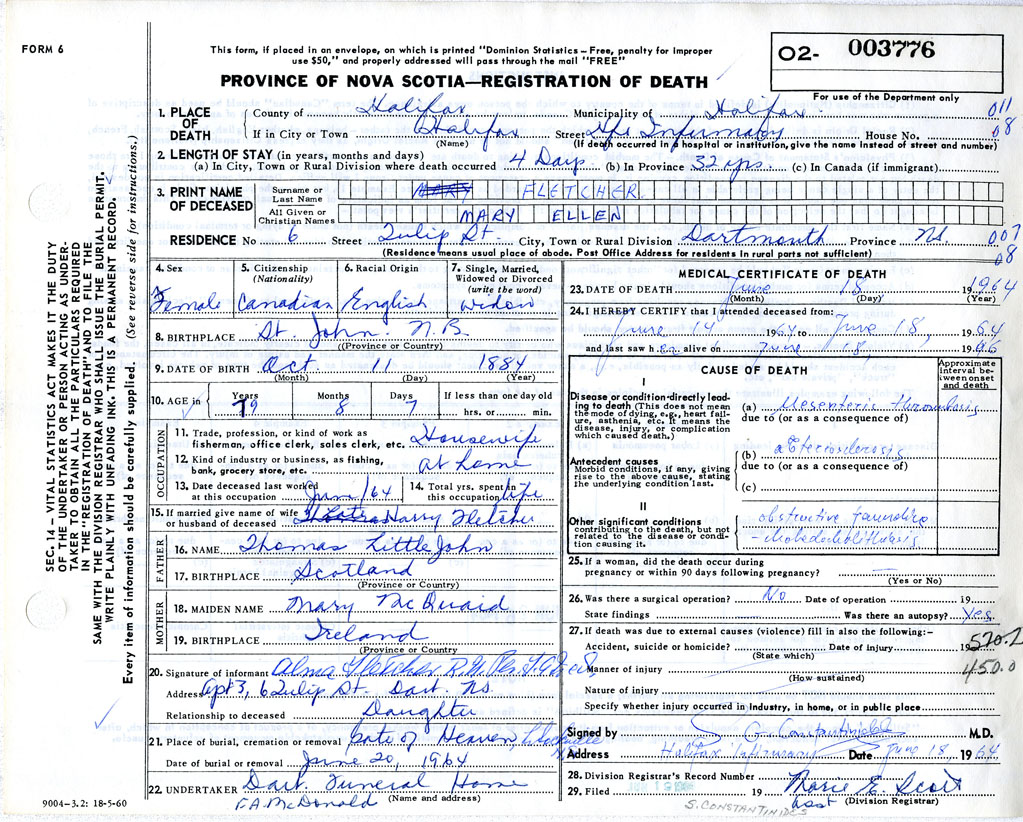 FORM 6
This form, if placed in an envelope, on which is printed "Dominion Statistics – Free, penalty for improper
use $50," and properly addressed will pass through the mail "FREE"
PROVINCE OF NOVA SCOTIA—REGISTRATION OF DEATH
O2- 003776
For use of the Department only
SEC. 14 – VITAL STATISTICS ACT MAKES IT THE DUTY
OF THE UNDERTAKER OR PERSON ACTING AS UNDER-
TAKER TO OBTAIN ALL THE PARTICULARS REQUIRED
IN THE "REGISTRATION OF DEATH" AND TO FILE THE
SAME WITH THE DIVISION REGISTRAR WHO SHALL ISSUE THE BURIAL PERMIT.
WRITE PLAINLY WITH UNFADING INK. THIS IS A PERMANENT RECORD.
Every item of information should be carefully supplied. (See reverse side for instructions.)
1. PLACE OF DEATH
County of Halifax Municipality of Halifax 011
If in City or Town Halifax Street Hfx Infirmary House No. 08
(Name) (If death occurred in a hospital or institution, give the name instead of street and number)
2. LENGTH OF STAY (in years, months and days)
(a) In City, Town or Rural Division where death occurred 4 Days (b) In Province 32 yrs. (c) In Canada (if immigrant)
3. PRINT NAME OF DECEASED
Surname or Last Name MARY FLETCHER
All Given or Christian Names MARY ELLEN
RESIDENCE No 6 Street Tulip St. City, Town or Rural Division Dartmouth Province NS. 007
(Residence means usual place of abode. Post Office Address for residents in rural parts not sufficient) 08
4. Sex Female
5. Citizenship (Nationality) Canadian
6. Racial Origin English
7. Single, Married, Widowed or Divorced (write the word) widow
8. BIRTHPLACE St. John. N.B.
(Province or Country)
9. DATE OF BIRTH Oct. 11 1884
(Month) (Day) (Year)
10. AGE in Years 79 Months 8 Days 7 If less than one day old hrs. or min.
OCCUPATION
11. Trade, profession, or kind of work as fisherman, office clerk, sales clerk, etc. Housewife
12. Kind of industry or business, as fishing, bank, grocery store, etc. at home
13. Date deceased last worked at this occupation June/64 14. Total yrs. spent in this occupation life
15. If married give name of wife or husband of deceased Harry Fletcher
FATHER
16. NAME Thomas LittleJohn
17. BIRTHPLACE Scotland
(Province or Country)
MOTHER
18. MAIDEN NAME Mary McQuaid
19. BIRTHPLACE Ireland
(Province or Country)
20. Signature of informant Alma Fletcher R.N.
Address Apt 3, 6 Tulip St. Dart. NS
Relationship to deceased Daughter
21. Place of burial, cremation or removal Gate of Heaven,
Date of burial or removal June 20, 1964
22. UNDERTAKER Dart. Funeral Home
F.A. McDonald (Name and address)
9004-3.2: 18-5-60
MEDICAL CERTIFICATE OF DEATH
23. DATE OF DEATH June 18 1964
(Month) (Day) (Year)
24. I HEREBY CERTIFY that I attended deceased from:
June 14 1964 to June 18, 1964
and last saw her alive on June 18, 19
CAUSE OF DEATH
Approximate interval between onset and death
I
Disease or condition directly leading to death (This does not mean the mode of dying, e.g., heart failure, asthenia, etc. It means the disease, injury, or complication which caused death.)
(a) Mesenteric thrombosis
due to (or as a consequence of)
Antecedent causes
Morbid conditions, if any, giving rise to the above cause, stating the underlying condition last.
(b) atherosclerosis
due to (or as a consequence of)
(c)
II
Other significant conditions
contributing to the death, but not related to the disease or condition causing it.
obstructive jaundice
- choledocholithiasis
25. If a woman, did the death occur during
pregnancy or within 90 days following pregnancy?
(Yes or No)
26. Was there a surgical operation? No Date of operation 19
State findings Was there an autopsy? Yes.
27. If death was due to external causes (violence) fill in also the following:–
Accident, suicide or homicide? Date of injury 19
(State which) 570.2
Manner of injury 450.0
(How sustained)
Nature of injury
Specify whether injury occurred in industry, in home, or in public place
Signed by S G Constantinides M.D.
Address Halifax Infirmary Date June 18, 1964
28. Division Registrar's Record Number
29. Filed 19 Marie E. Scott
asst (Division Registrar)
S. CONSTANTINIDES